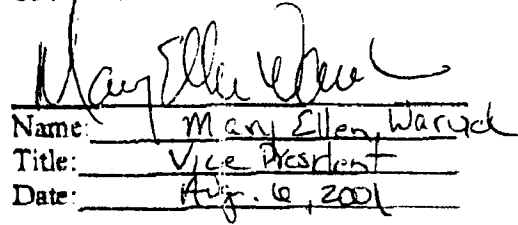 Mary Ellen
Name: Mary Ellen
Title: Vice President
Date: Aug. 6, 2001